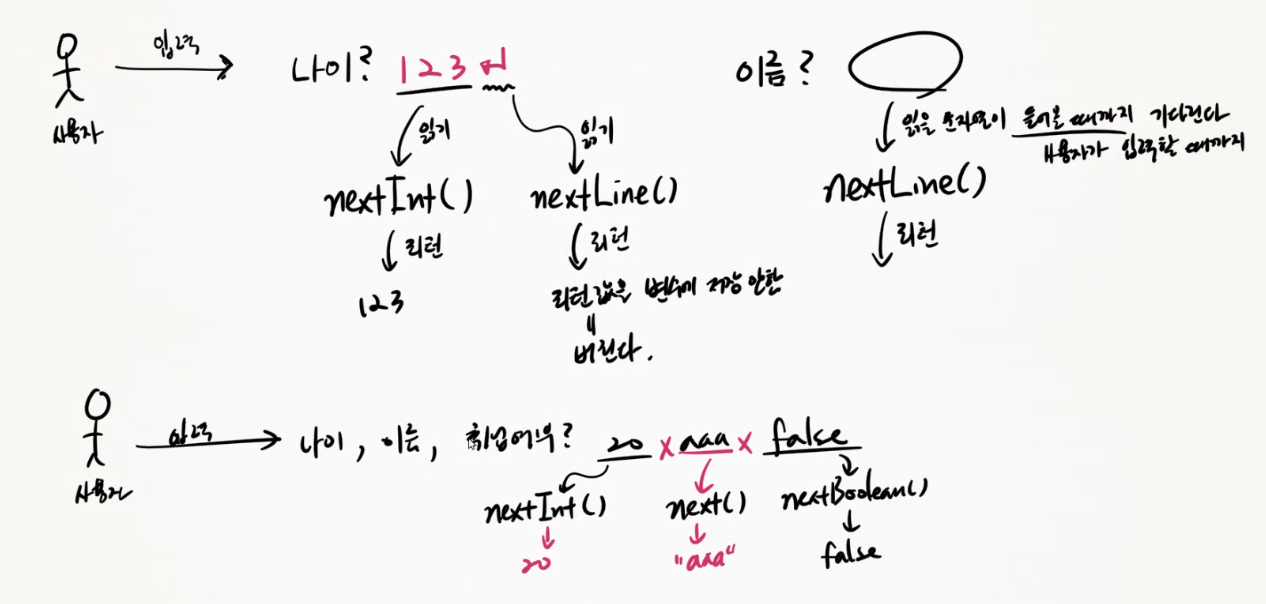 입력
나이? 123 ↵
이름?
사용자
읽기
읽기
읽을 문자열이 들어올 때까지 기다린다
사용자가 입력할 때까지
nextInt()
nextLine()
nextLine()
리턴
리턴
리턴
123
리턴 값을 변수에 저장 안함
=
버린다.
입력
나이, 이름, 취업여부? 20 x aaa x false
사용자
nextInt()
next()
nextBoolean()
20
"aaa"
false